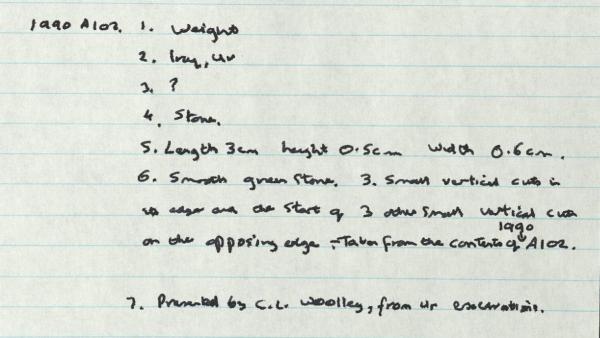 1990 A102. 1. Weight
2. Iraq, Ur
3. ?
4. Stone.
5. Length 3cm height 0.5cm width 0.6cm.
6. Smooth green stone. 3. Small vertical cuts in
edge and the start of 3 other small vertical cuts
1990
on the opposing edge - Taken from the contents of A102.
7. Presented by C.L. Woolley, from Ur excavations.